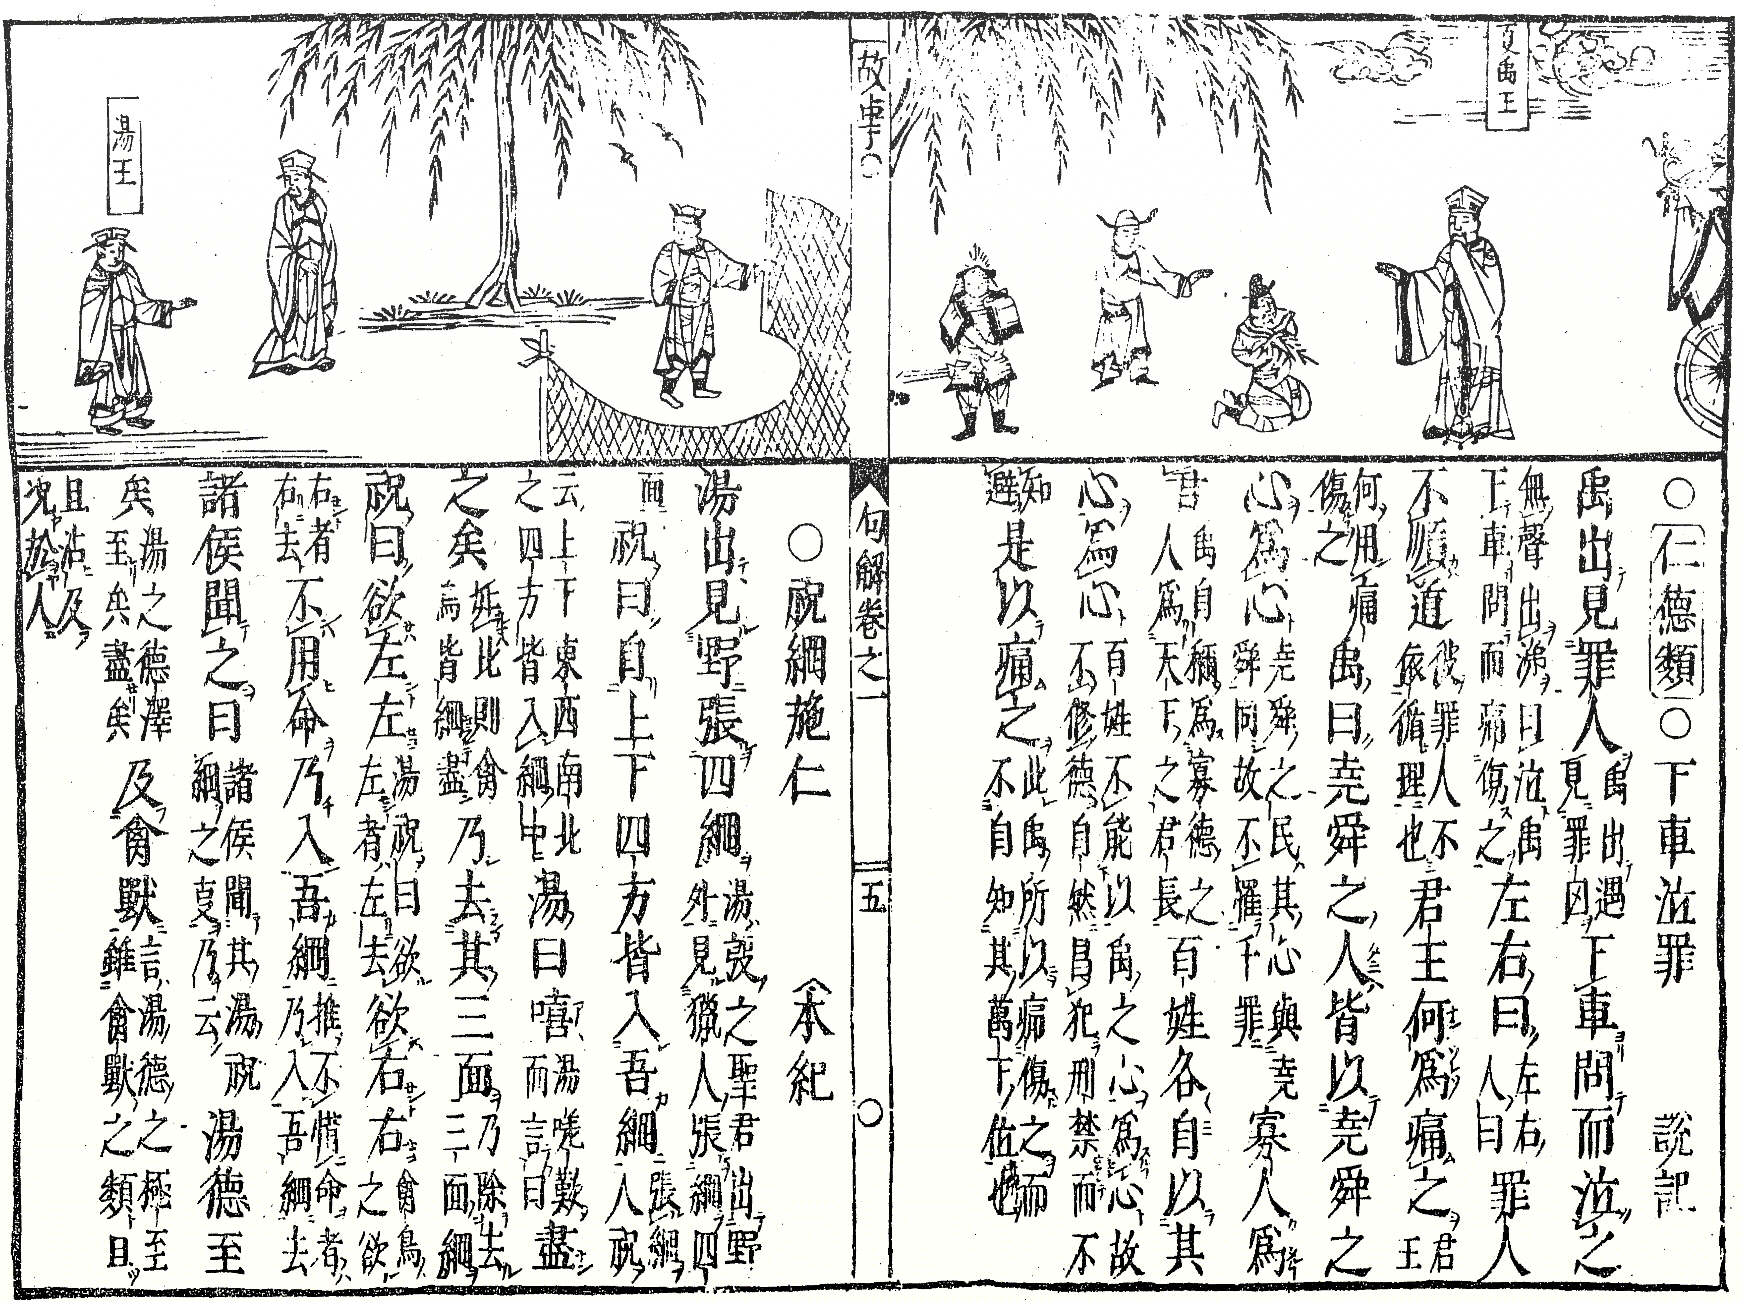 夏禹王
○仁德類○下車泣罪 說記
禹出見罪人禹出遇見罪囚下車問而泣之
無聲出涕曰泣禹下車問而痛傷之左右曰左右人曰罪人
不順道彼罪人不依循理也君王何爲痛之君王
何用痛傷之禹曰堯舜之人皆以堯舜之
心爲心堯舜之民其心與堯舜同故不罹于罪寡人爲
君禹自稱爲寡德之人爲天下之君長百姓各自以其
心爲心百姓不能以禹之心爲心故不修德自然昌犯刑禁而不
知避是以痛之此禹所以痛傷之而不自知其萬下位也
故事○ 句解卷之一 五 ○
湯王
○祝網施仁 本紀
湯出見野張四網湯殷之聖君出野外見獵人張網四
面祝曰自上下四方皆入吾網張網人祝
云上下東西南北之四方皆入網中湯曰嘻湯嗟歎而言曰盡
之矣如此則禽鳥皆網盡乃去其三面乃除去三面網
祝曰欲左左湯祝曰欲左者左去欲右右禽鳥之欲
右者右去不用命乃入吾網推不惜命者乃入吾網去
諸侯聞之曰諸侯聞其湯祝網之言乃云湯德至
矣湯之德澤至矣盡矣及禽獸言湯德之極至雖禽獸之類且
且沾及况於人